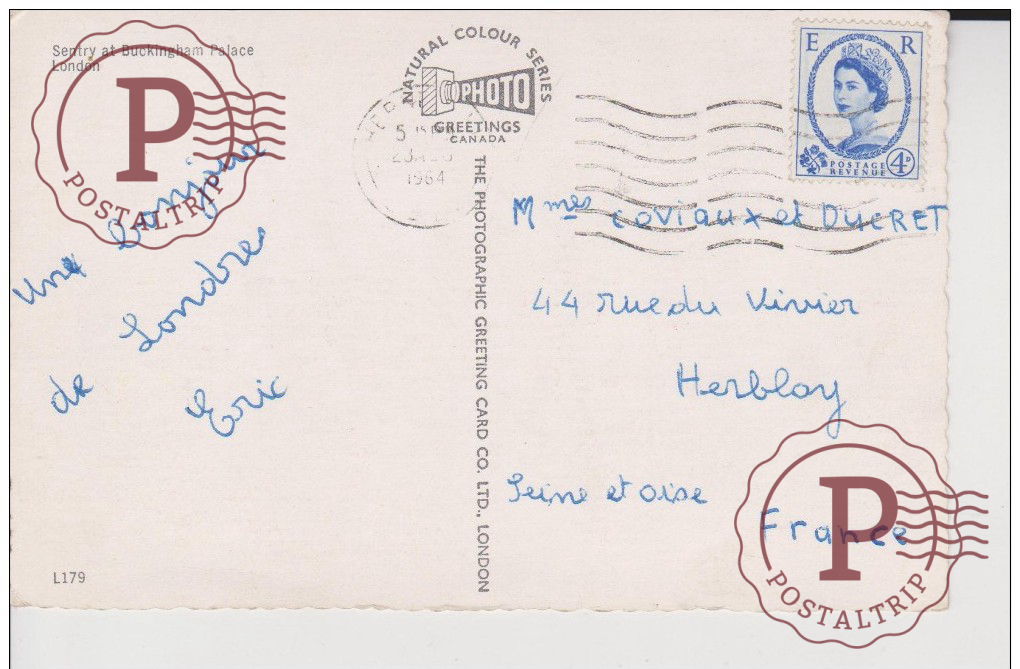 Sentry at Buckingham Palace
London
P
POSTALTRIP
NATURAL COLOUR SERIES
PHOTO
GREETINGS
CANADA
1964
E R
POSTAGE
REVENUE
4D
Une bonjour
de Londres
Eric
THE PHOTOGRAPHIC GREETING CARD CO. LTD., LONDON
Mmes Coviaux et DUCRET
44 rue du Vivier
Herblay
Seine et oise
France
L179
P
POSTALTRIP